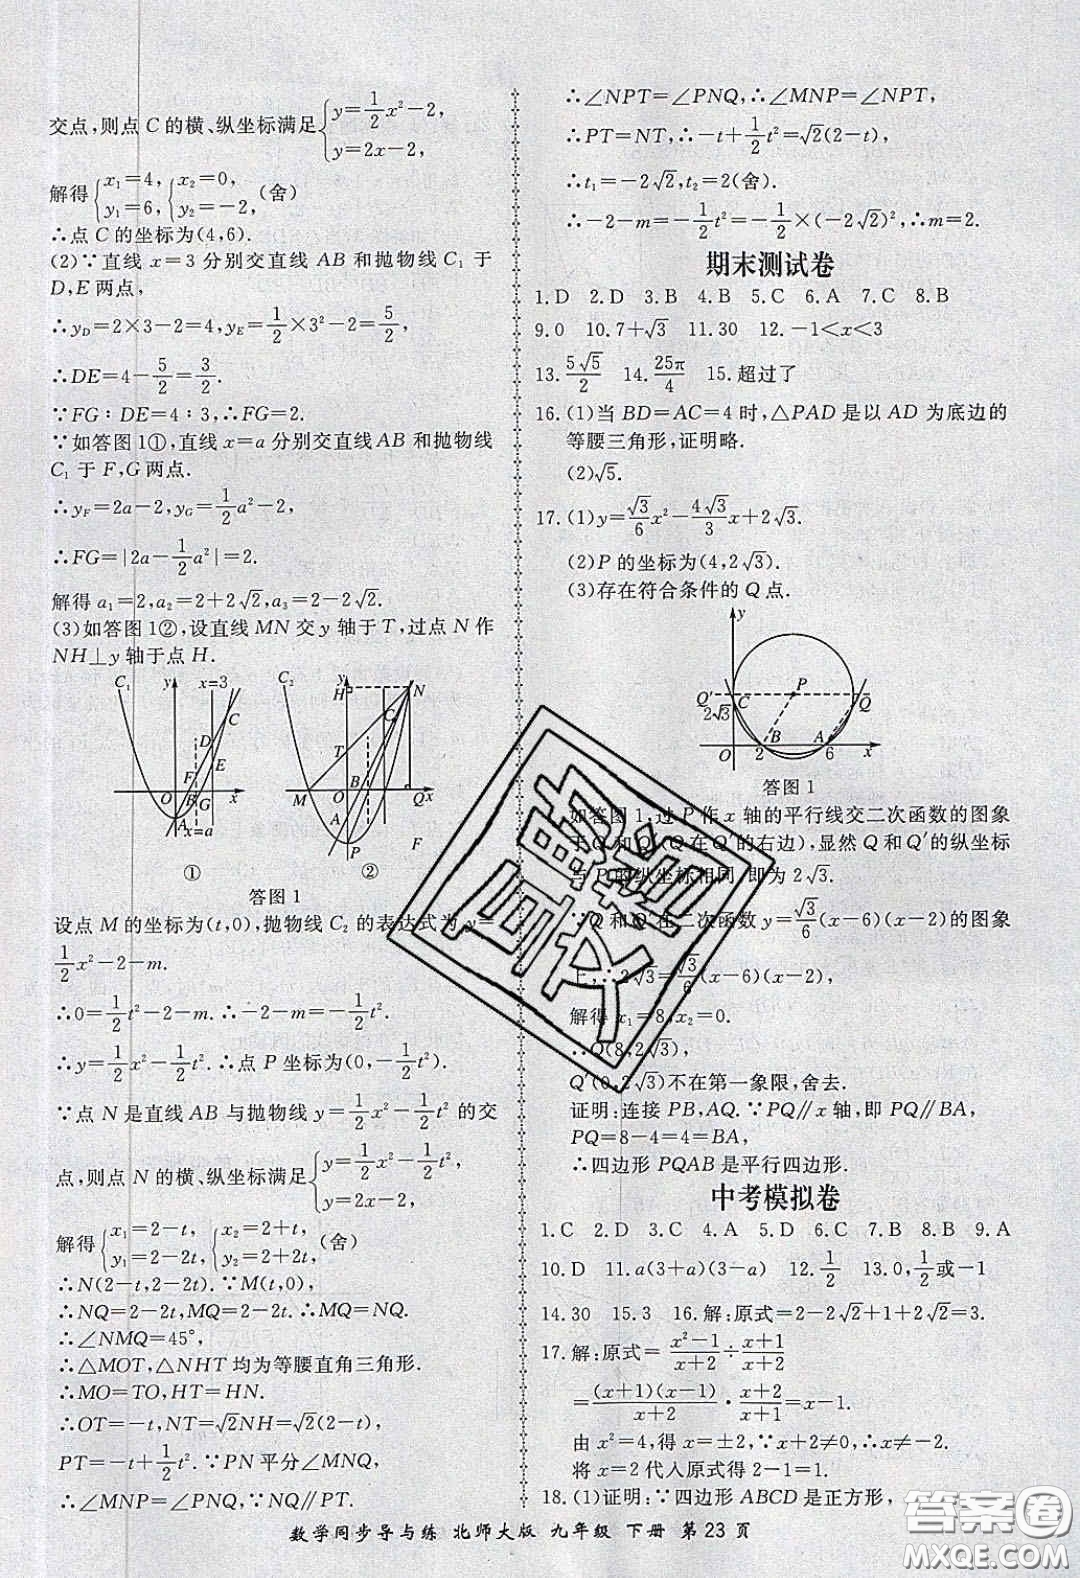 交点,则点 C 的横、纵坐标满足 { y=1/2x²-2, y=2x-2,
解得 { x₁=4, y₁=6, { x₂=0, y₂=-2, (舍)
∴点 C 的坐标为(4,6).
(2)∵直线 x=3 分别交直线 AB 和抛物线 C₁ 于
D,E 两点,
∴y_D=2×3-2=4,y_E=1/2×3²-2=5/2,
∴DE=4-5/2=3/2.
∵FG∶DE=4∶3,∴FG=2.
∵如答图1①,直线 x=a 分别交直线 AB 和抛物线
C₁ 于 F,G 两点.
∴y_F=2a-2,y_G=1/2a²-2,
∴FG=|2a-1/2a²|=2.
解得 a₁=2,a₂=2+2√2,a₃=2-2√2.
(3)如答图1②,设直线 MN 交 y 轴于 T,过点 N 作
NH⊥y 轴于点 H.
C₁ y x=3 C D E F O B G x A x=a ①
C₂ y H N C T M O B Q x A P F ②
答图 1
设点 M 的坐标为(t,0),抛物线 C₂ 的表达式为 y=
1/2x²-2-m.
∴0=1/2t²-2-m. ∴-2-m=-1/2t².
∴y=1/2x²-1/2t². ∴点 P 坐标为(0,-1/2t²).
∵点 N 是直线 AB 与抛物线 y=1/2x²-1/2t² 的交
点,则点 N 的横、纵坐标满足 { y=1/2x²-1/2t², y=2x-2,
解得 { x₁=2-t, y₁=2-2t, { x₂=2+t, y₂=2+2t, (舍)
∴N(2-t,2-2t). ∵M(t,0),
∴NQ=2-2t,MQ=2-2t. ∴MQ=NQ.
∴∠NMQ=45°,
∴△MOT,△NHT 均为等腰直角三角形.
∴MO=TO,HT=HN.
∴OT=-t,NT=√2NH=√2(2-t),
PT=-t+1/2t². ∵PN 平分∠MNQ,
∴∠MNP=∠PNQ,∵NQ∥PT.
∴∠NPT=∠PNQ,∴∠MNP=∠NPT,
∴PT=NT,∴-t+1/2t²=√2(2-t),
∴t₁=-2√2,t₂=2(舍).
∴-2-m=-1/2t²=-1/2×(-2√2)²,∴m=2.
期末测试卷
1.D 2.D 3.B 4.B 5.C 6.A 7.C 8.B
9.0 10.7+√3 11.30 12.-1<x<3
13.5√5/2 14.25π/4 15.超过了
16.(1)当 BD=AC=4 时,△PAD 是以 AD 为底边的
等腰三角形,证明略.
(2)√5.
17.(1)y=√3/6x²-4√3/3x+2√3.
(2)P 的坐标为(4,2√3).
(3)存在符合条件的 Q 点.
y Q′ C P Q 2√3 B A O 2 6 x
答图 1
如答图 1,过 P 作 x 轴的平行线交二次函数的图象
于 Q 和 Q′(Q 在 Q′的右边),显然 Q 和 Q′的纵坐标
与 P 的纵坐标相同,即为 2√3.
∵Q 和 Q′在二次函数 y=√3/6(x-6)(x-2)的图象
上,∴2√3=√3/6(x-6)(x-2),
解得 x₁=8,x₂=0.
∴Q(8,2√3),
Q′(0,2√3)不在第一象限,舍去.
证明:连接 PB,AQ. ∵PQ∥x 轴,即 PQ∥BA,
PQ=8-4=4=BA,
∴四边形 PQAB 是平行四边形.
中考模拟卷
1.C 2.D 3.C 4.A 5.D 6.C 7.B 8.B 9.A
10.D 11.a(3+a)(3-a) 12.1/2 13.0,1/2或-1
14.30 15.3 16.解:原式=2-2√2+1+2√2=3.
17.解:原式=x²-1/x+2÷x+1/x+2
=(x+1)(x-1)/x+2·x+2/x+1=x-1.
由 x²=4,得 x=±2,∵x+2≠0,∴x≠-2.
将 x=2 代入原式得 2-1=1.
18.(1)证明:∵四边形 ABCD 是正方形,
数学同步导与练 北师大版 九年级 下册 第23页
答案圈
MXQE.COM